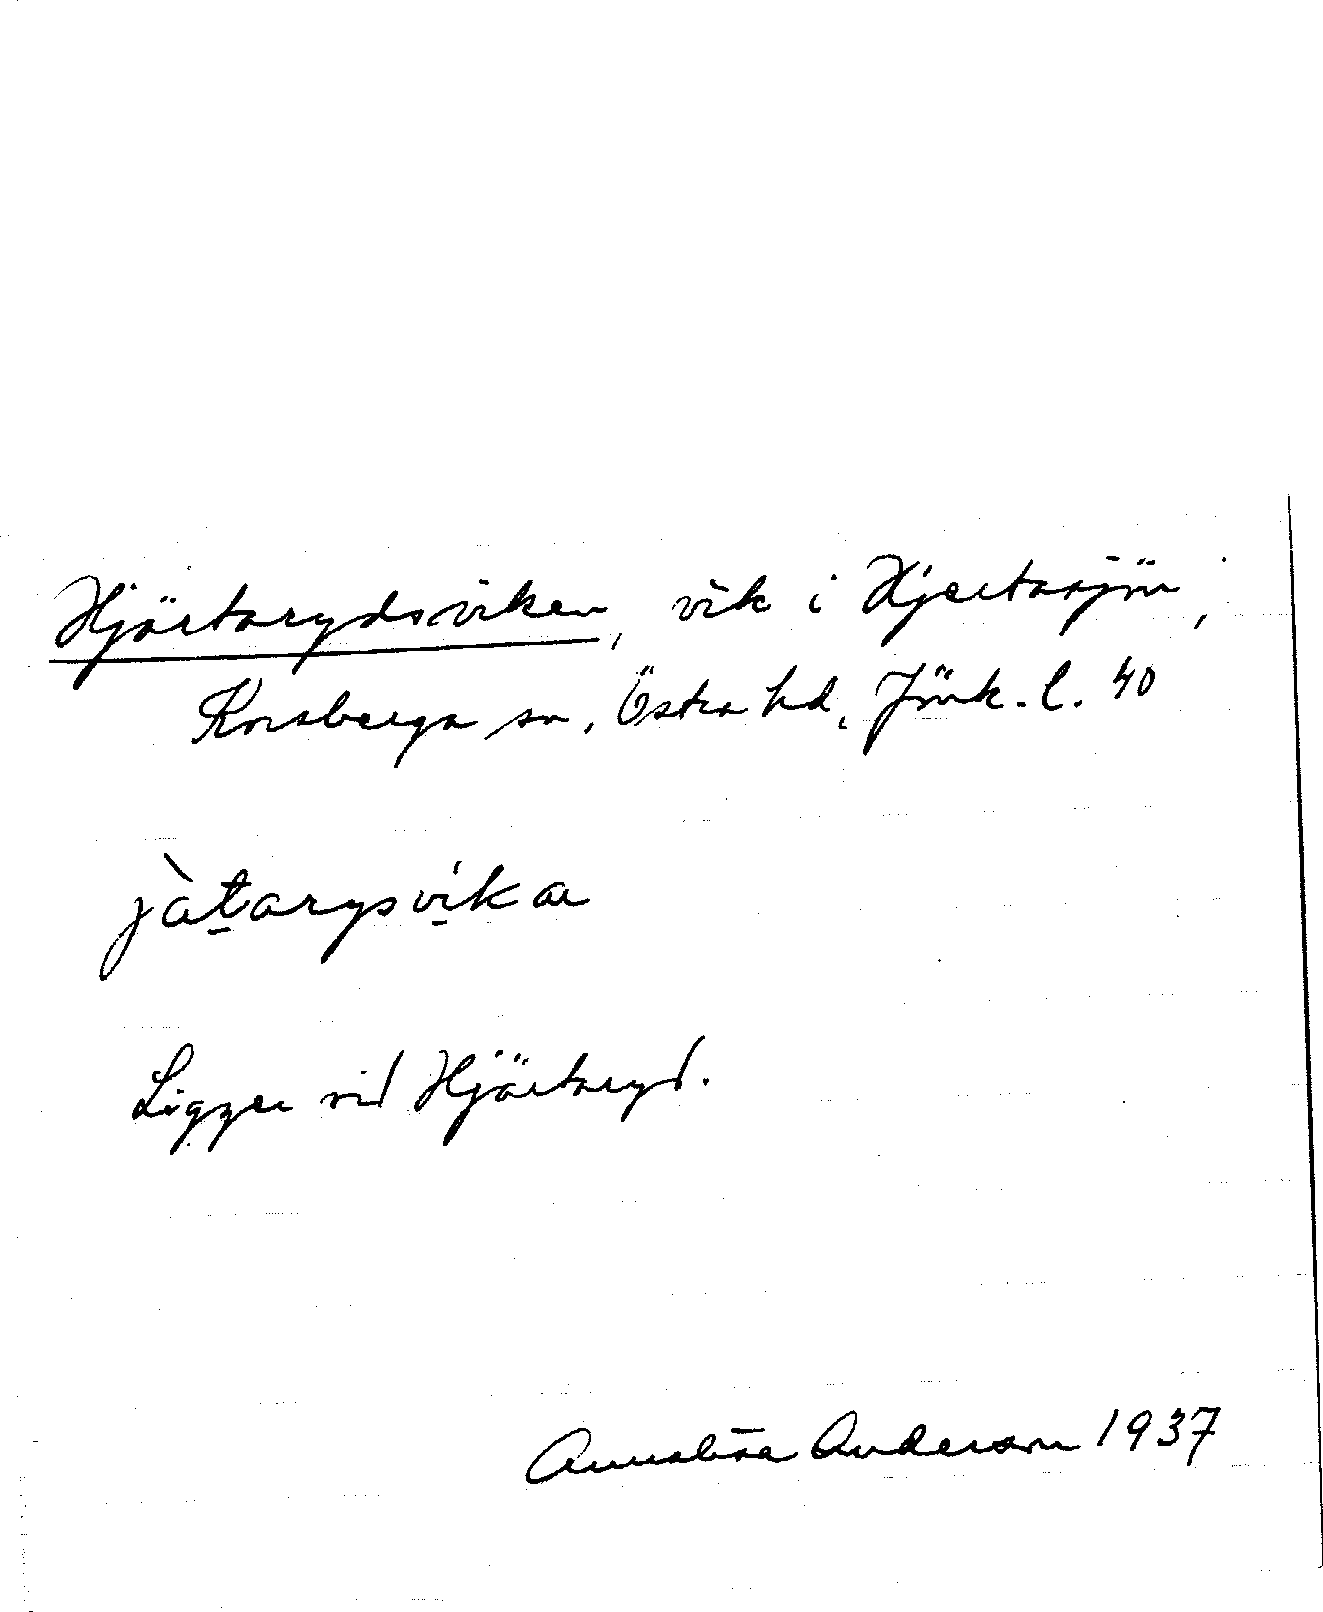 Hjärtarydsviken, vik i Hjertasjön,
Korsberga sn, Östra hd, Jönk. l. 40
jàtarysvíka
Ligger vid Hjärtaryd.
Annalisa Anderson 1937